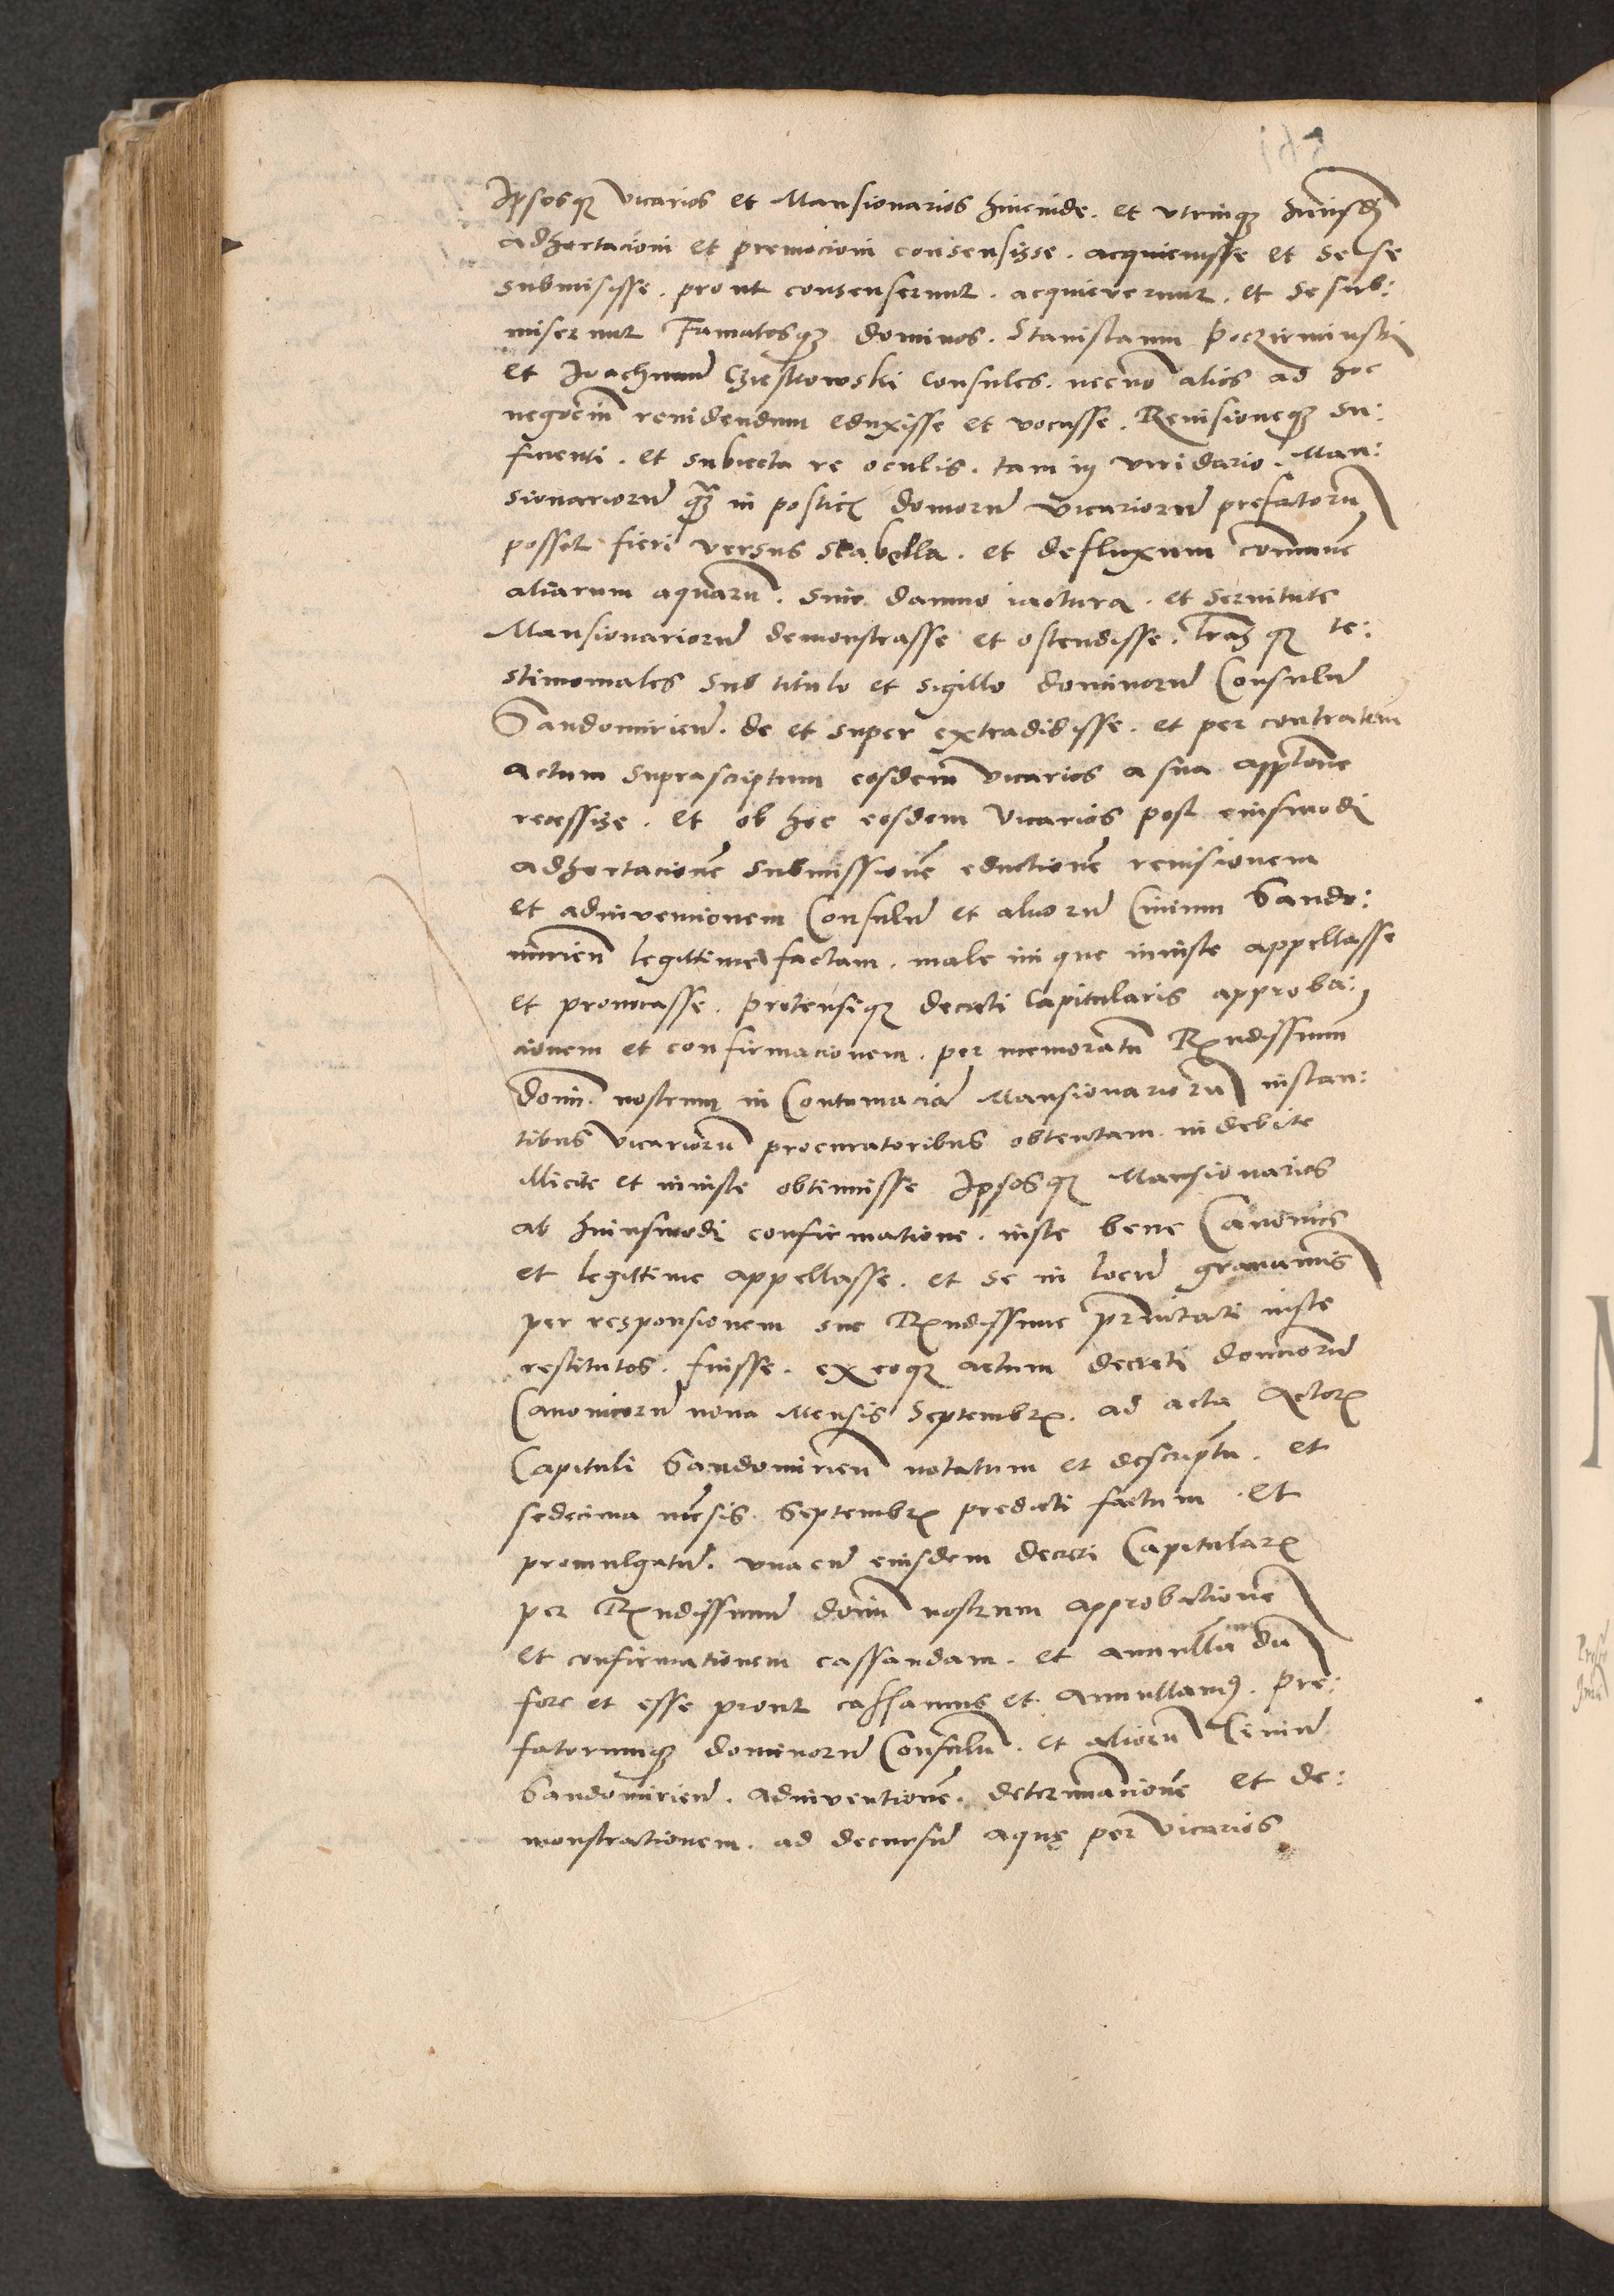 Ipsosq vicarios et Mansionarios hincinde. et vtrinq huiusdi
adhortacioni et premocioni consensisse. acquieuisse et sese
submisisse. prout consenserunt. acquieverunt. et se sub:
miserunt Famatosq dominos. Stanislaum
et Joachimum consules. necno alios ad hoc
negociu reuidendum eduxisse et vocasse. Reuisioneq su:
ficienti. et subiecta re oculis. tam in viridario. Man:
sionarioru qua in postici domoru vicarioru prefatoru
posset fieri versus stabella. et defluxum comune
aliarum aquaru. sine damno iactura. et seruitute
Mansionarioru demonstrasse et ostendisse. lras q te:
stimoniales sub titulo et sigillo dominoru Consulu
Sandomirien. de et super extradidisse. et per contratum
actum suprascriptum eosdem vicarios a sua appltone
recessisse. et ob hoc eosdem vicarios post eiusmodi
adhortacione submissione eductione reuisionem
et adinvencionem Consulu et alioru Ciuium Sando:
mirien legittime factam. male inique iniuste appellasse
et prouocasse. pretenseq decreti Capitularis approba:
cionem et confirmacionem. per memoratu Rndissimu
domi. nostrum in Contumacia Mansionarioru instan:
tibus vicarioru procuratoribus obtentam. indebite
illicite et iniuste obtinuisse Ipsosq Mansionarios
ab huiusmodi confirmatione. iuste bene Canonice
et legittime appellasse. et se in locu
per responsionem sue Rndissime prnitati iuste
restitutos. fuisse. ex eoq actum decreti dominoru
Canonicoru nona Mensis Septembr. ad acta Actor
Capituli Sandomirien notatum et descriptu. et
sedecima mesis. Septembr predicti factum. et
promulgatu. vna cu eiusdem decreti Capitular
per Rndissimu domi nostrum approbatione
et confirmationem cassandam. et annullandu
fore et esse prout cassamus et Annullam9. pre:
fatorumq dominoru Consulu. et alioru Ciuiu
Sandomirien. adinventione. determinacione et de:
monstrationem. ad decursu aque per vicarios